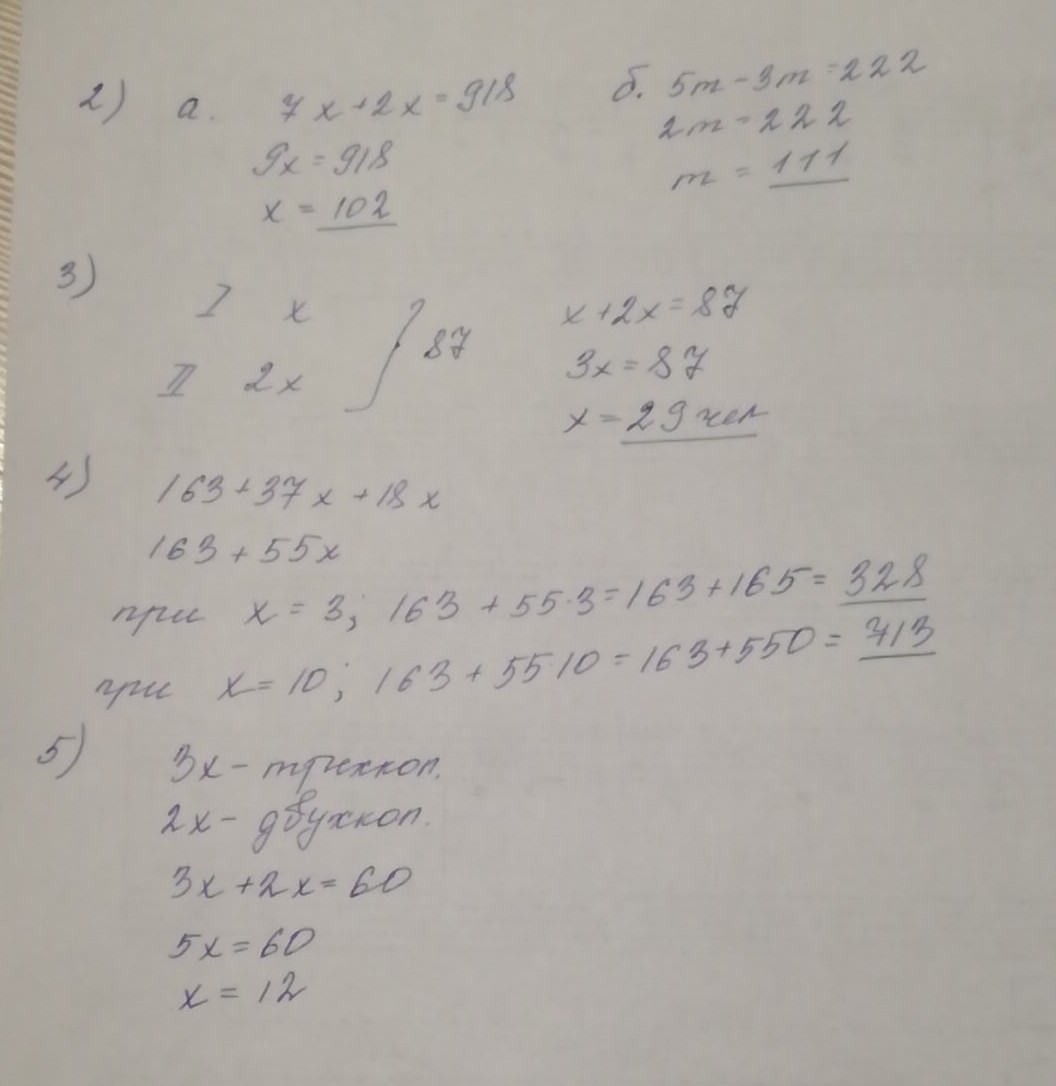 2) а. 7x+2x=918
9x=918
x=102
б. 5m-3m=222
2m=222
m=111
3)
I x
II 2x
87
x+2x=87
3x=87
x=29 чел
4) 163+37x+18x
163+55x
при x=3; 163+55·3=163+165=328
при x=10; 163+55·10=163+550=713
5) 3x- трехкоп.
2x- двухкоп.
3x+2x=60
5x=60
x=12